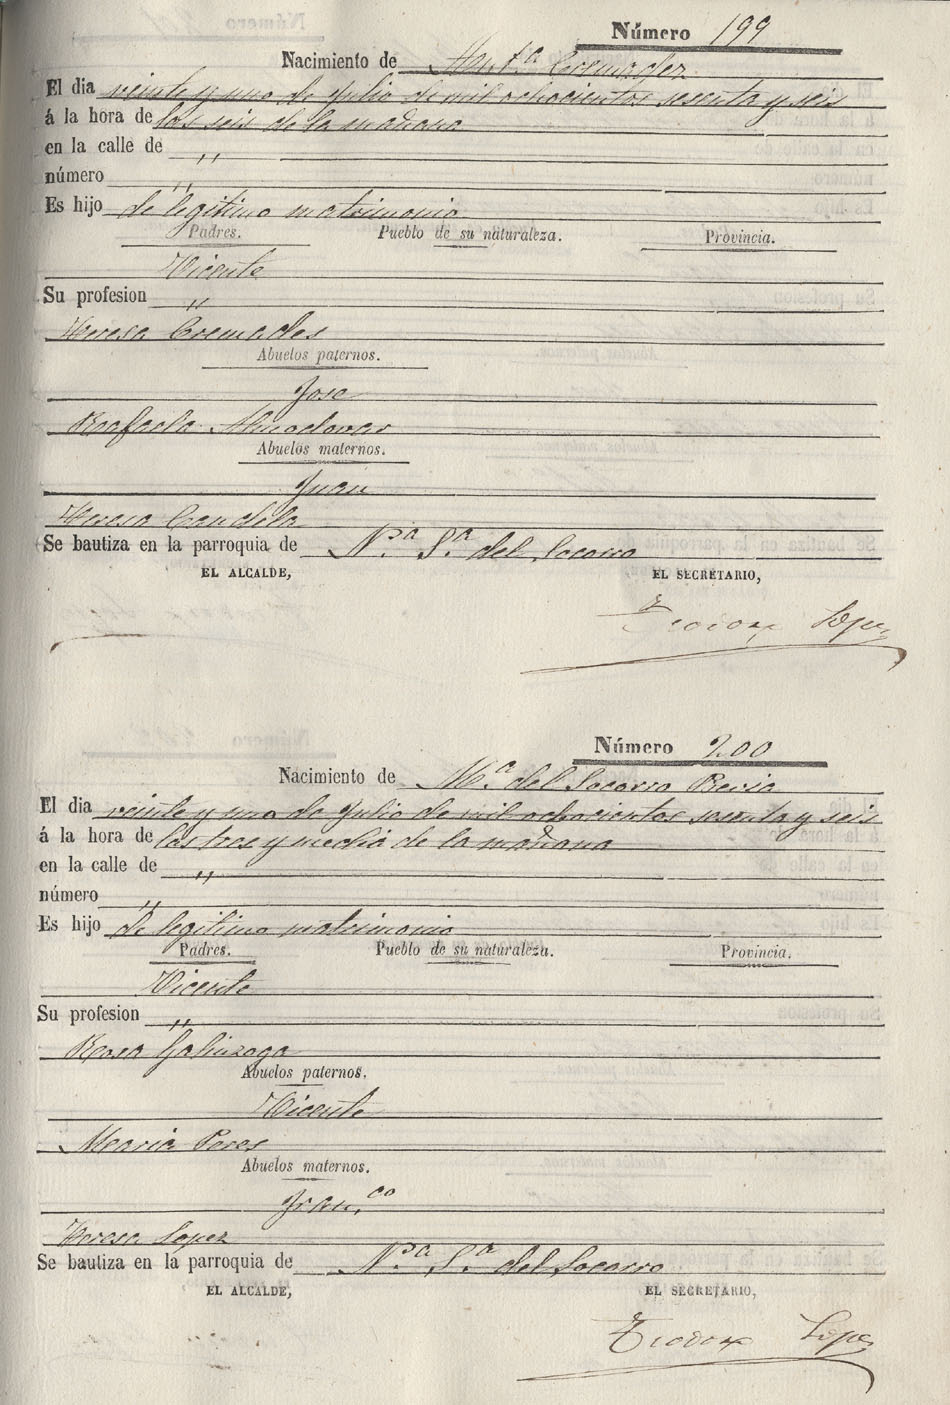 Número 199
Nacimiento de Ant.ª Cremades
El dia veinte y uno de Julio de mil ochocientos sesenta y seis
á la hora de las seis de la mañana
en la calle de ,,
número ,,
Es hijo de legitimo matrimonio
Padres. Pueblo de su naturaleza. Provincia.
Vicente
Su profesion ,,
Teresa Cremades
Abuelos paternos.
Jose
Rafaela Almodovar
Abuelos maternos.
Juan
Teresa Candela
Se bautiza en la parroquia de N.ª S.ª del Socorro
EL ALCALDE, EL SECRETARIO,
Teodoro Lopez
Número 200
Nacimiento de M.ª del Socorro
El dia veinte y uno de Julio de mil ochocientos sesenta y seis
á la hora de las tres y media de la mañana
en la calle de ,,
número ,,
Es hijo de legitimo matrimonio
Padres. Pueblo de su naturaleza. Provincia.
Vicente
Su profesion ,,
Rosa Galinzoga
Abuelos paternos.
Vicente
Maria Peres
Abuelos maternos.
Fran.co
Teresa Lopez
Se bautiza en la parroquia de N.ª S.ª del Socorro
EL ALCALDE, EL SECRETARIO,
Teodoro Lopez